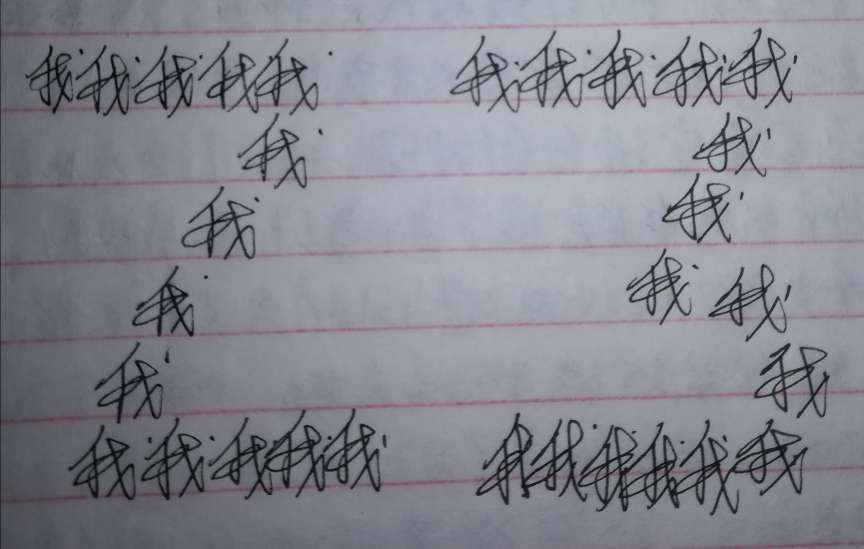 我我我我我 我我我我我
我 我
我 我
我 我我
我 我
我我我我我 我我我我我我